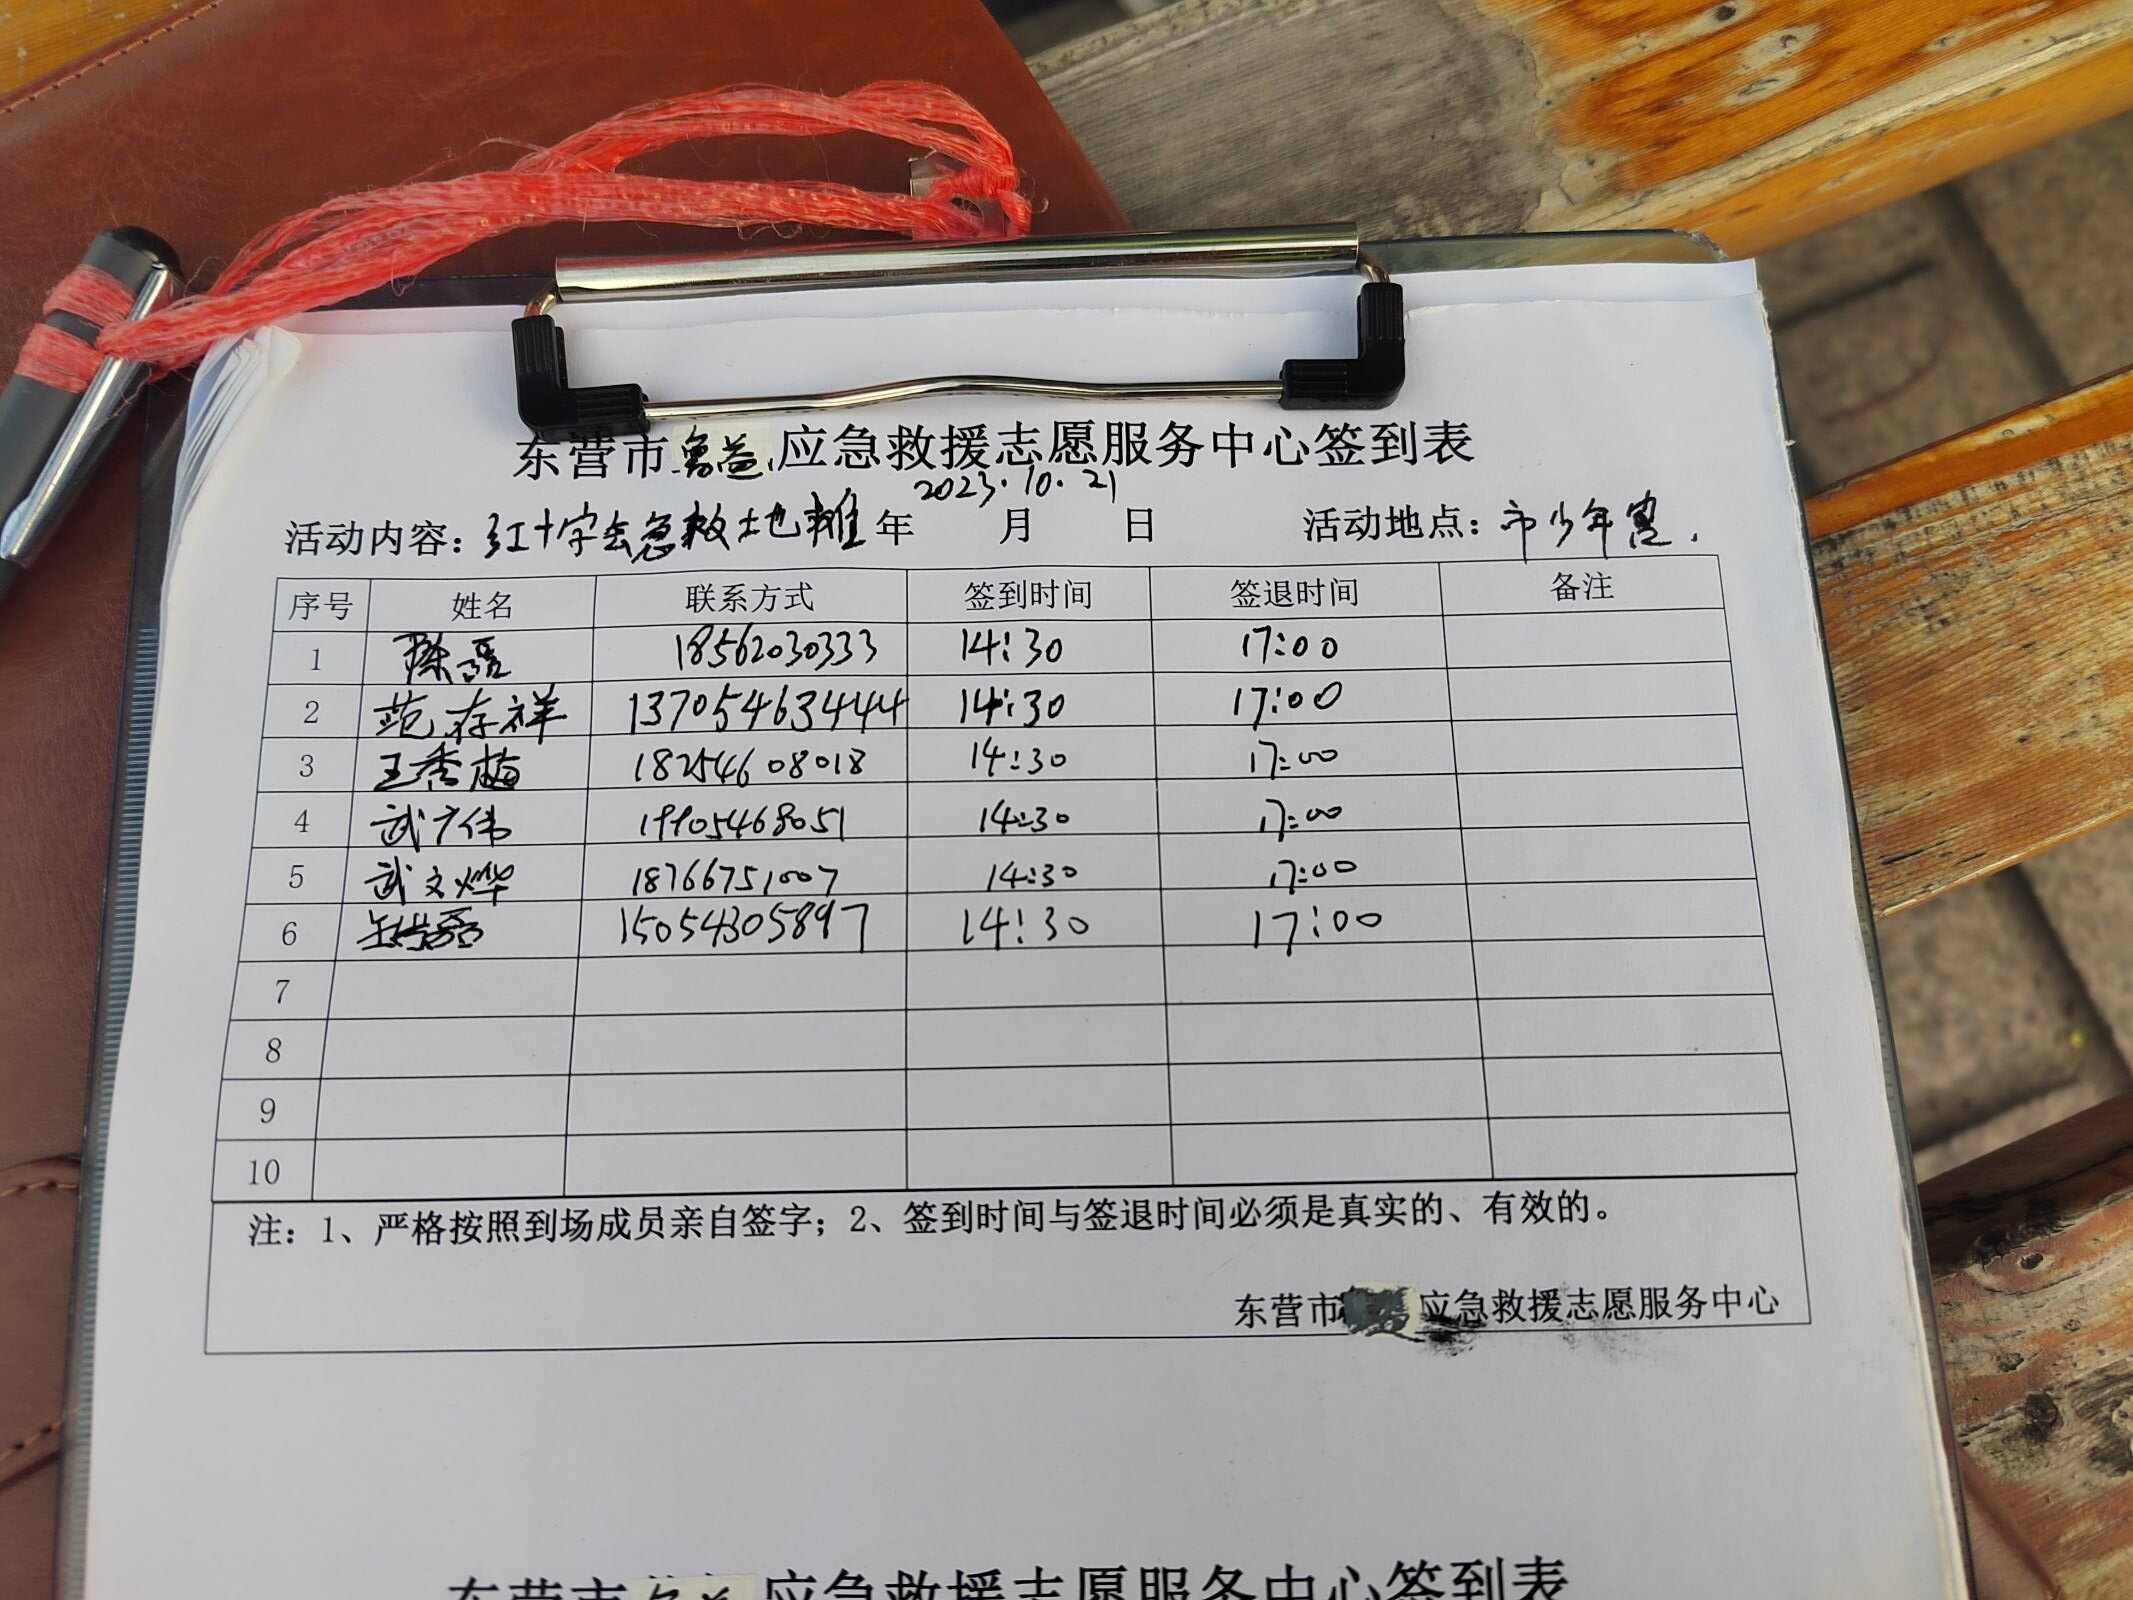 东营市鲁益应急救援志愿服务中心签到表
2023.10.21
活动内容：红十字会急救地摊 年 月 日 活动地点：市少年宫.
序号 姓名 联系方式 签到时间 签退时间 备注
1 陈磊 18562030333 14:30 17:00
2 范存祥 13705463444 14:30 17:00
3 王秀梅 18254608018 14:30 17:00
4 武广伟 19905468051 14:30 17:00
5 武文烨 18766751007 14:30 17:00
6 15054305897 14:30 17:00
7
8
9
10
注：1、严格按照到场成员亲自签字；2、签到时间与签退时间必须是真实的、有效的。
东营市 应急救援志愿服务中心
东营市鲁益应急救援志愿服务中心签到表